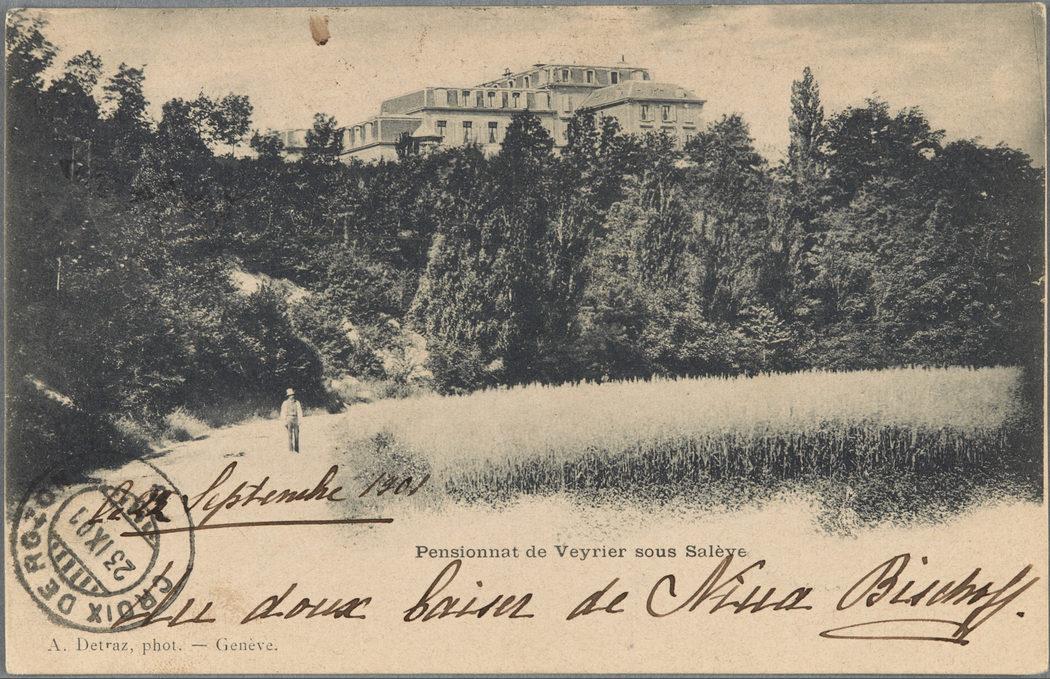 le 22 Septembre 1901
CROIX DE ROZON
23 IX 01
Pensionnat de Veyrier sous Salève
Un doux baiser de Nina Bischoff.
A. Detraz, phot. — Genève.